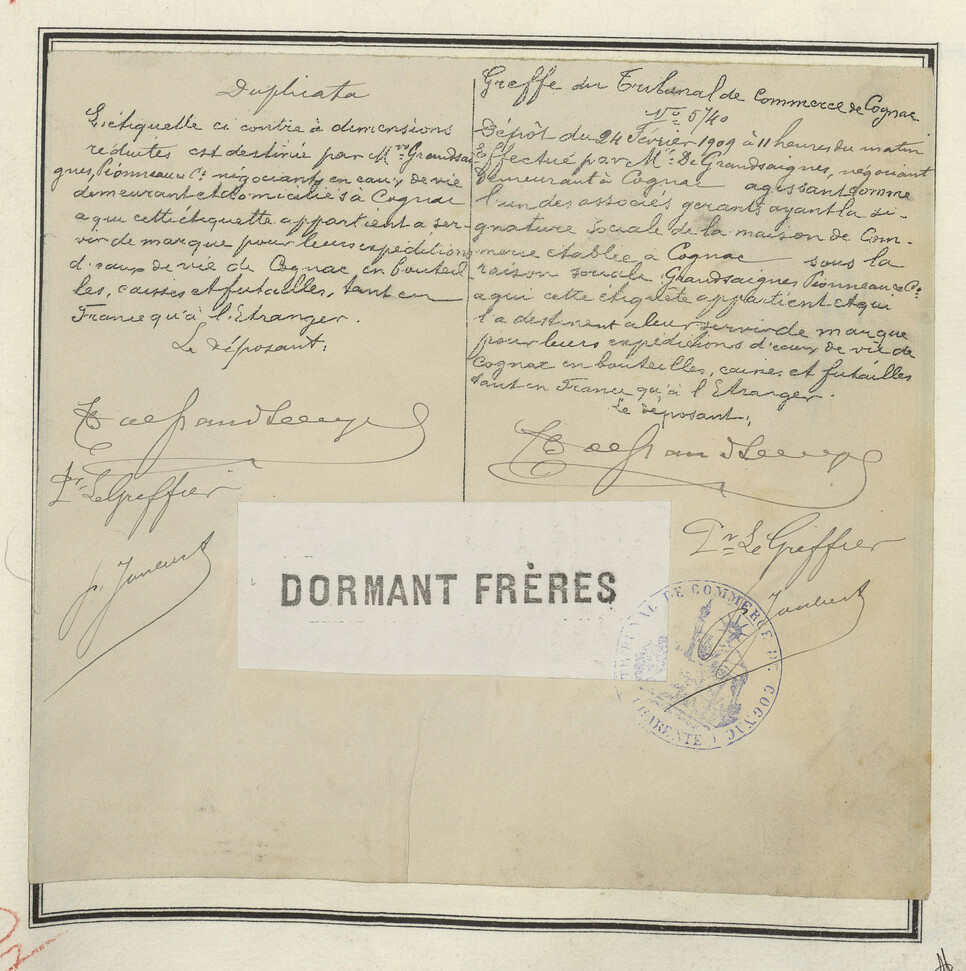 Duplicata
L'étiquette ci contre à dimensions
réduites est destinée par Mrs Grandsai-
gnes, Pionneau & Co négociants en eaux de vie
demeurant et domiciliés à Cognac
a qui cette étiquette appartient a ser-
vir de marque pour leurs expéditions
d'eaux de vie de Cognac en bouteil-
les, caisses et futailles, tant en
France qu'à l'Etranger.
Le déposant,
Pr Le Greffier
Greffe du Tribunal de Commerce de Cognac
No 5740
Dépôt du 24 Février 1909 à 11 heures du matin
Effectué par Mr De Grandsaignes, négociant
demeurant à Cognac agissant comme
l'un des associés gérants ayant la si-
gnature sociale de la maison de Com-
merce établie à Cognac sous la
raison sociale Grandsaignes Pionneau & Co
a qui cette étiquête appartient et qui
l'a destinent a leur servir de marque
pour leurs expéditions d'eaux de vie de
Cognac en bouteilles, caisses et futailles
tant en France qu'à l'Etranger.
Le déposant,
Pr Le Greffier
DORMANT FRÈRES
TRIBUNAL DE COMMERCE DE COGNAC
CHARENTE